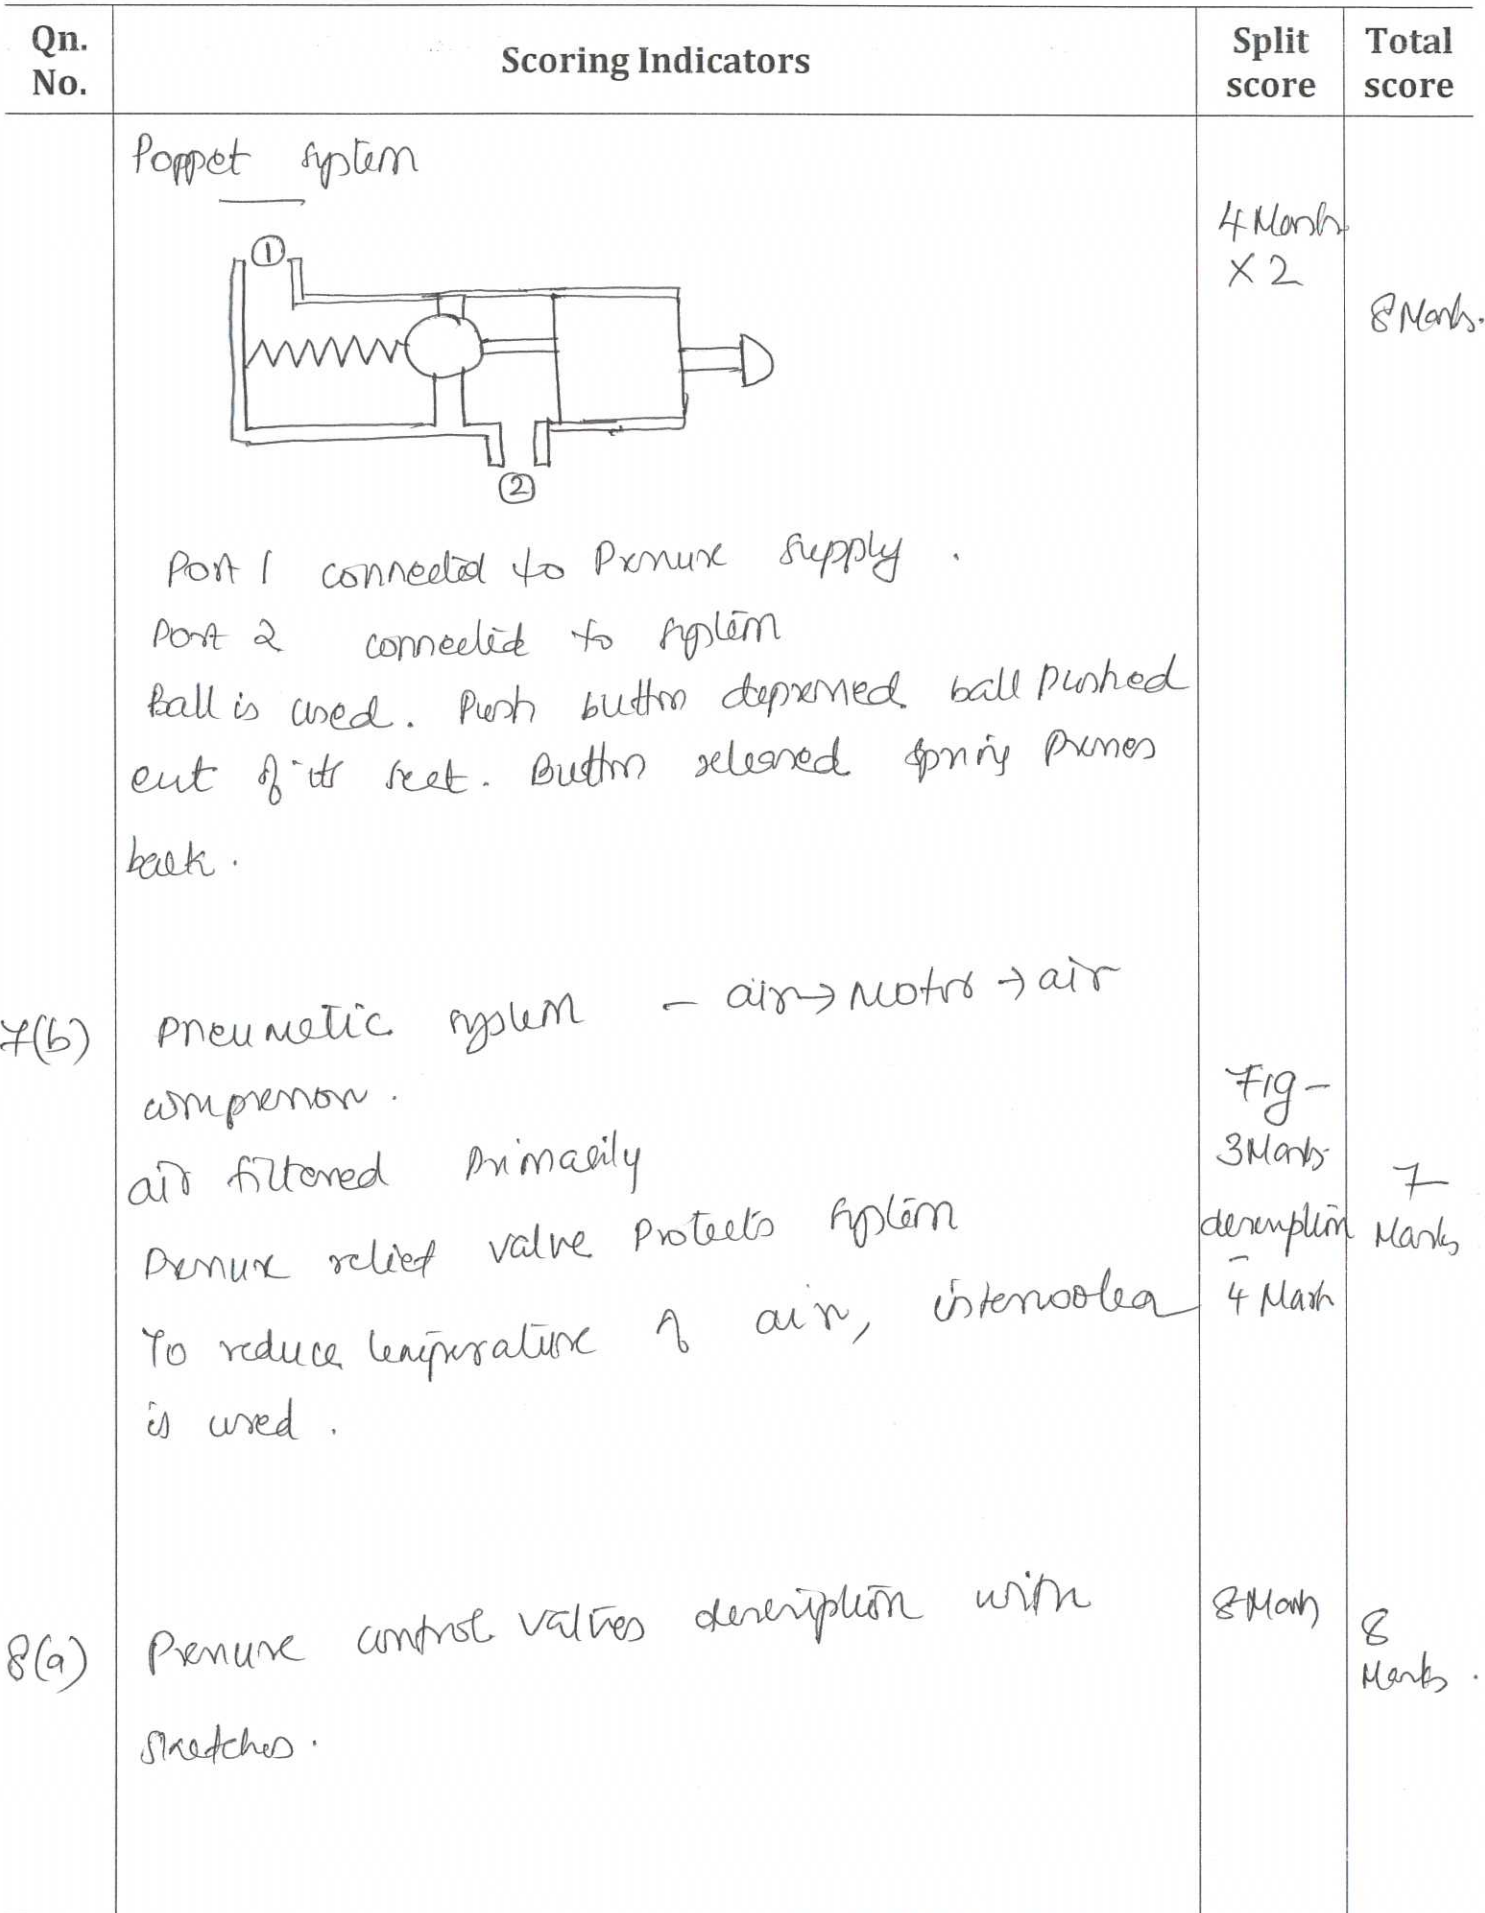 Qn. No.
Scoring Indicators
Split score
Total score
Poppet system
4 Marks
X 2
8 Marks.
①
②
Port 1 connected to Pressure supply.
Port 2 connected to system
Ball is used. Push button depressed ball pushed
out of its seat. Button released spring presses
back.
7(b)
Pneumatic system - air → Motor → air
compressor.
air filtered primarily
Pressure relief valve Protects system
To reduce temperature of air, intercooler
is used.
Fig -
3 Marks
description
-
4 Mark
7
Marks
8(a)
Pressure control valves description with
sketches.
8 Mark
8
Marks.